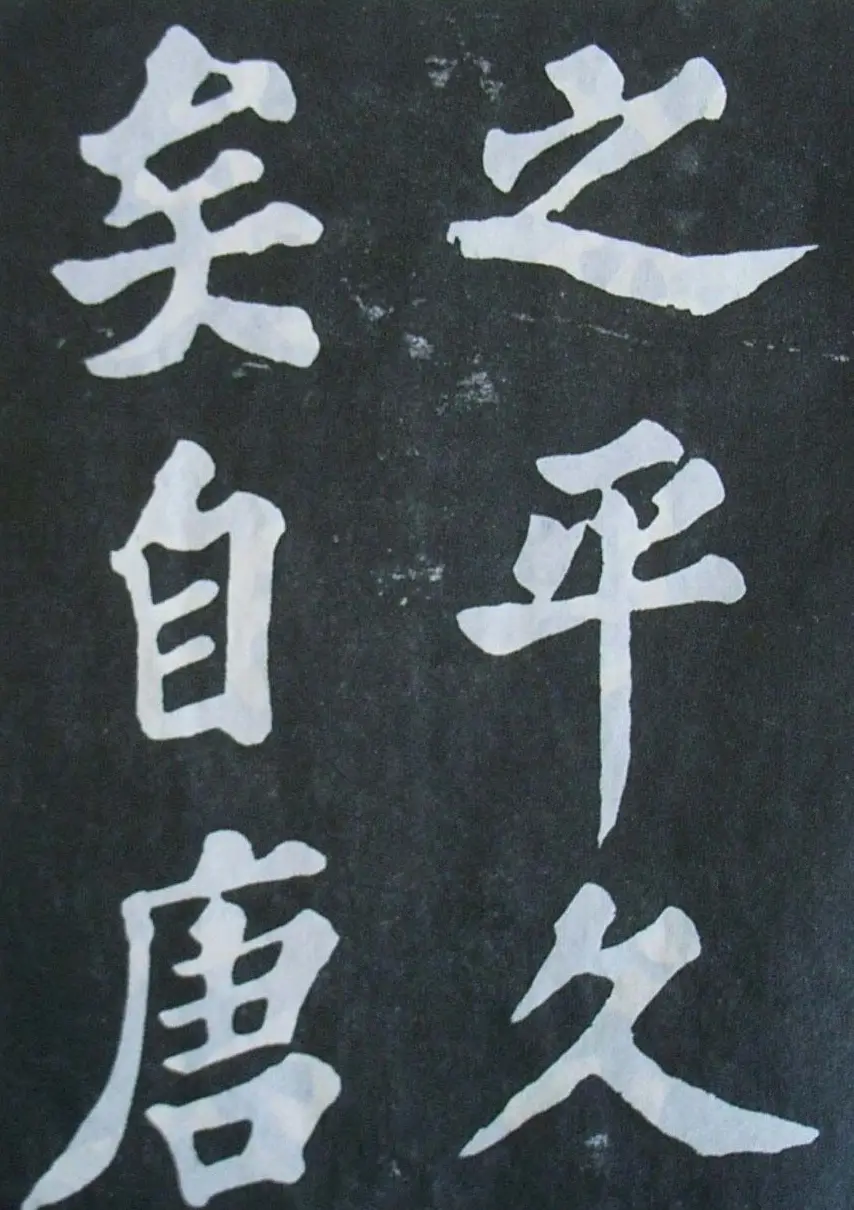 之平久
矣自唐